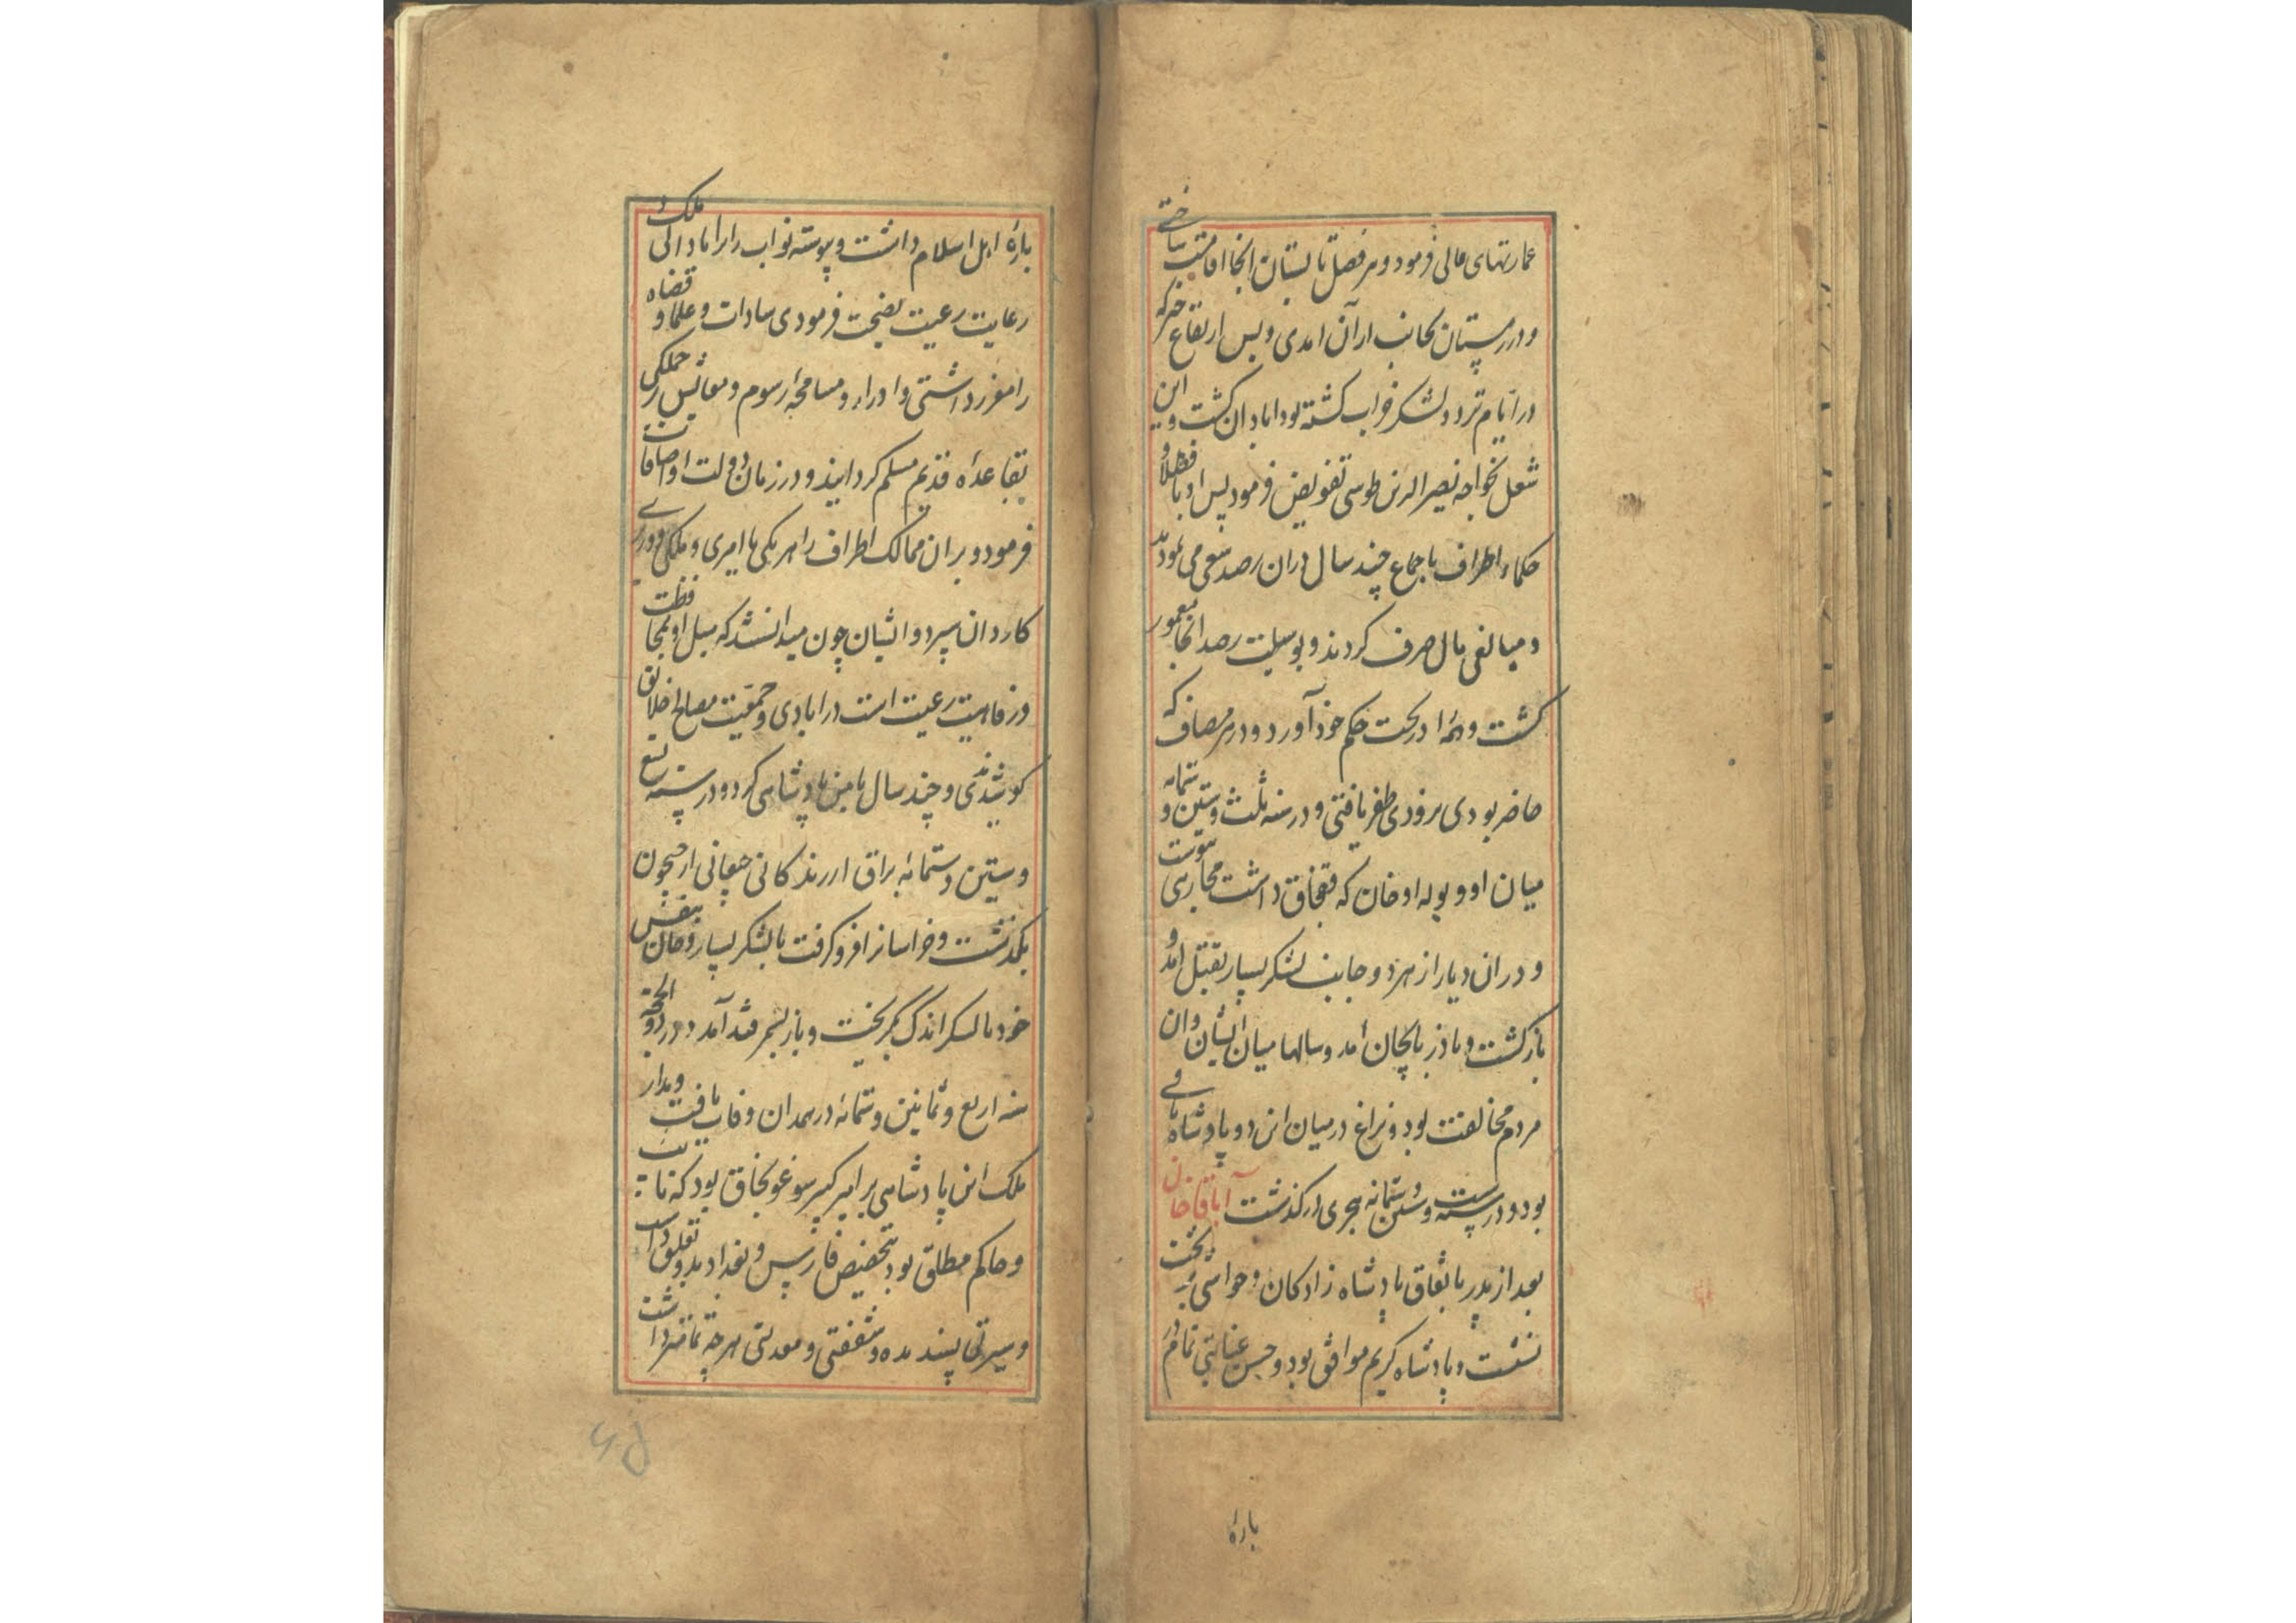 عمارتهای عالی فرمود و هر فصل تابستان انجا اقامت ساختی
و در زمستان بجانب اران امدی و پس ارتفاع خیر که
در ایام تردد لشکر خراب کشته بود ابادان کشت و این
شغل بخواجه نصیر الدین طوسی تفویض فرمود پس او با فضلا و
حکماء اطراف باجماع چند سال دران رصد سعی می نمودند
و مبالغی مال صرف کردند و بوسیلت رصد انجا معمور
کشت و همه را در تحت حکم خود آورد و در هر مصاف که
حاضر بودی بزودی ظفر یافتی و در سنه ثلث و ستین و ستمایه
میان او و اوخان که قبچاق داشت محاربتی
و دران دیار از هر دو جانب لشکر بسیار بقتل امد و
باز کشت و باذربایجان امد و سالها میان ایشان و ان
مردم مخالفت بود و نزاع در میان این دو پادشاه باقی
بود و در سنه ست و ستین و ستمایه هجری در کذشت آباقا خان
بعد از پدر باتفاق پادشاه زادکان و حواشی بر تخت
نشست و پادشاه کریم موافق بود و حسن عنایتی تمام در
بارهٔ
بارهٔ اهل اسلام داشت و پیوسته نواب را بر ابادانی ملک و
رعایت رعیت نصیحت فرمودی سادات و علما و قضاه
را معزز داشتی و ادرار و مسامحهٔ رسوم و معایش را جملکی
بقاعدهٔ قدیم مسلم کردانید و در زمان دولت او
فرمود و بران ممالک اطراف را هر یکی با امیری و ملکی و وزیری
کاردان سپرد و ایشان چون میدانستند که میل او بمحافظت
و رفاهیت رعیت است در ابادی و جمعیت مصالح خلایق
کوشیدندی و چند سال بامن پادشاهی کرد و در سنه تسع
و ستین و ستمائه براق از جیحون
بکذشت و خراسان را فرو کرفت با لشکر بسیار و خان بنفس
خود با لشکر اندک بکریخت و باز بسمرقند آمد و در ذو الحجه
سنه اربع و ثمانین و ستمائه در همدان وفات یافت
ملک این پادشاهی بر امیر کبیر سوغونجاق بود که نایب
و حاکم مطلق بود بتخصیص فارس و بغداد بدو تعلق داشت
و سیرتی پسندیده و شفقتی و معدلتی هر چه تمامتر داشت